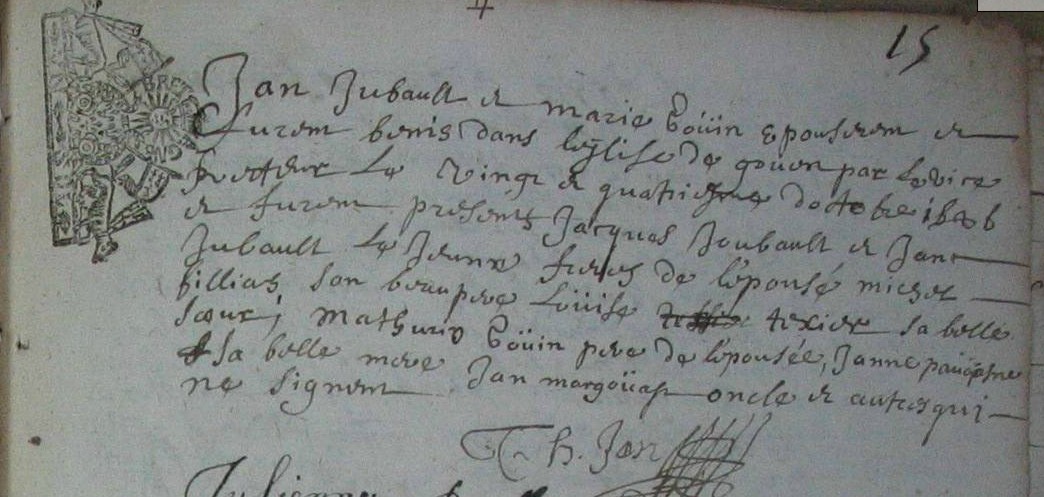 15
Jan Jubault et marie Boüin epouserent et
furent benis dans leglise de goüen par le vice
Recteur le vingt et quatriesme doctobre
et furent presents Jacques Joubault et Jan
Jubault le Jeune freres de lépousé michel
fillias son beaupere Loüise texier sa belle
sœur, Mathurin Boüin pere de lépousée, Janne
sa belle mere Jan margoüast oncle et autres qui
ne signent
Th. Jan
Julienne